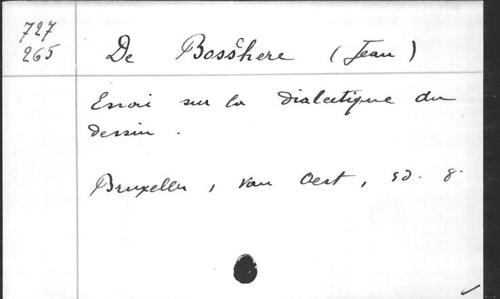 727
265
De Bosschere (Jean)
Essai sur la dialectique du
dessin.
Bruxelles, Van Oest, s d. 8.